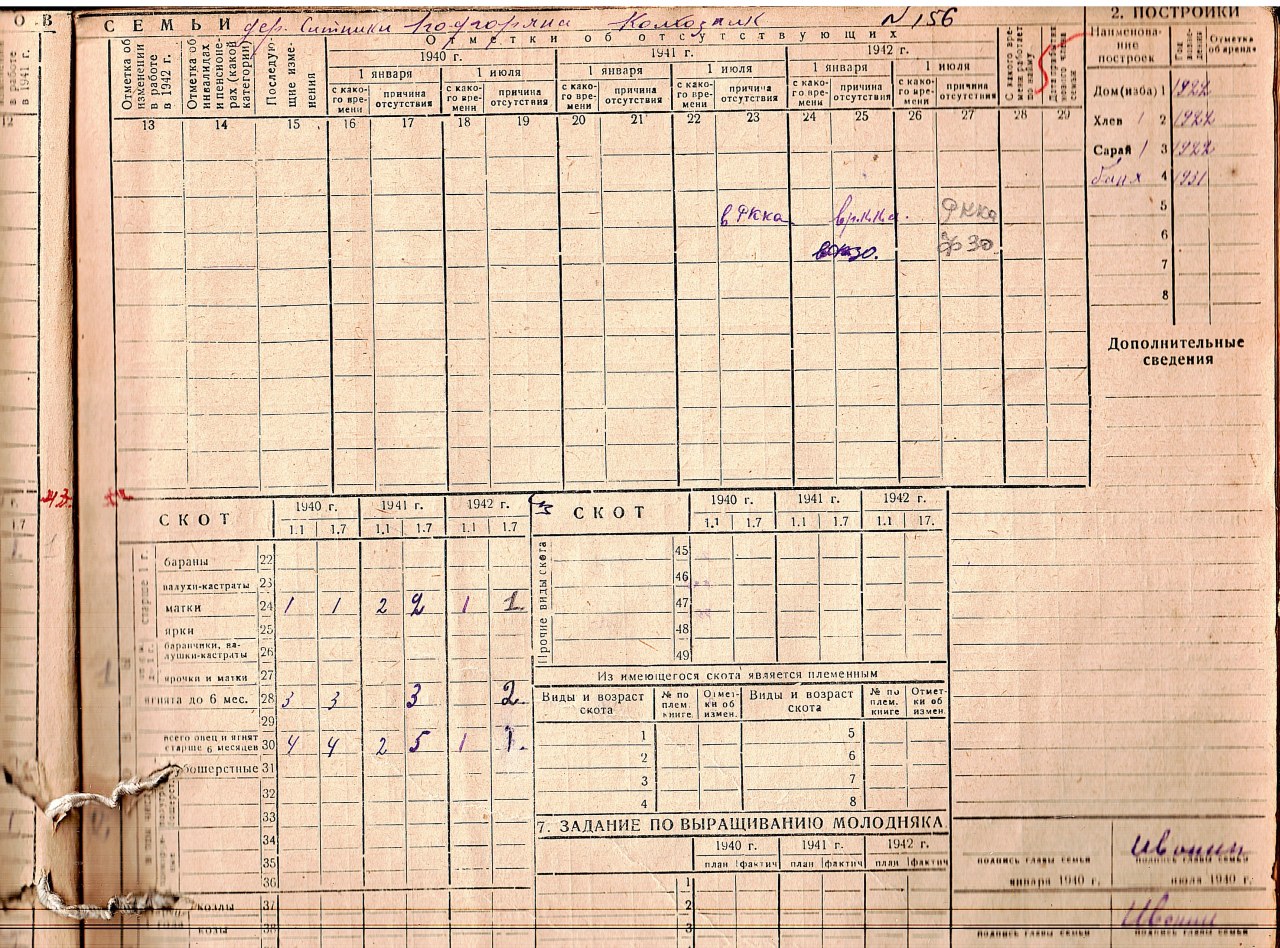 О В
в работе
в 1941 г.
12
СЕМЬИ дер. Ситники Колхозник N 156
Отметки об отсутствующих
1940 г. 1941 г. 1942 г.
1 января 1 июля 1 января 1 июля 1 января 1 июля
Отметка об изменении в работе в 1942 г.
Отметка об инвалидах и пенсионерах (какой категории)
Последующие изменения
с како-го вре-мени причина отсутствия с како-го вре-мени причина отсутствия с како-го вре-мени причина отсутствия с како-го вре-мени причина отсутствия с како-го вре-мени причина отсутствия с како-го вре-мени причина отсутствия
С какого вре-мени работает по найму
13 14 15 16 17 18 19 20 21 22 23 24 25 26 27 28 29
в РККА в р.к.к.а. РККА
в ФЗО. ФЗО
2. ПОСТРОЙКИ
Наименова-ние построек
Отметка об аренде
Дом(изба) 1 1922
Хлев 1 2 1922
Сарай 1 3 1922
баня 4 1931
5
6
7
8
Дополнительные
сведения
СКОТ 1940 г. 1941 г. 1942 г.
1.1 1.7 1.1 1.7 1.1 1.7
старше 1 г.
бараны 22
валухи-кастраты 23
матки 24 1 1 2 2 1 1
ярки 25
баранчики, ва-
лушки-кастраты 26
ярочки и матки 27
ягнята до 6 мес. 28 3 3 3 2
29
всего овец и ягнят
старше 6 месяцев 30 4 4 2 5 1 1
бошерстные 31
32
33
34
35
36
козлы 37
козы 38
СКОТ 1940 г. 1941 г. 1942 г.
1.1 1.7 1.1 1.7 1.1 17.
Прочие виды скота
45
46
47
48
49
Из имеющегося скота является племенным
Виды и возраст скота № по плем. книге Отмет-ки об измен. Виды и возраст скота № по плем. книге Отмет-ки об измен.
1 5
2 6
3 7
4 8
7. ЗАДАНИЕ ПО ВЫРАЩИВАНИЮ МОЛОДНЯКА
1940 г. 1941 г. 1942 г.
план фактич план фактич план фактич
1
2
3
Ивонин
подпись главы семьи подпись главы семьи
января 1940 г. июля 1940 г.
Ивонин
подпись главы семьи подпись главы семьи